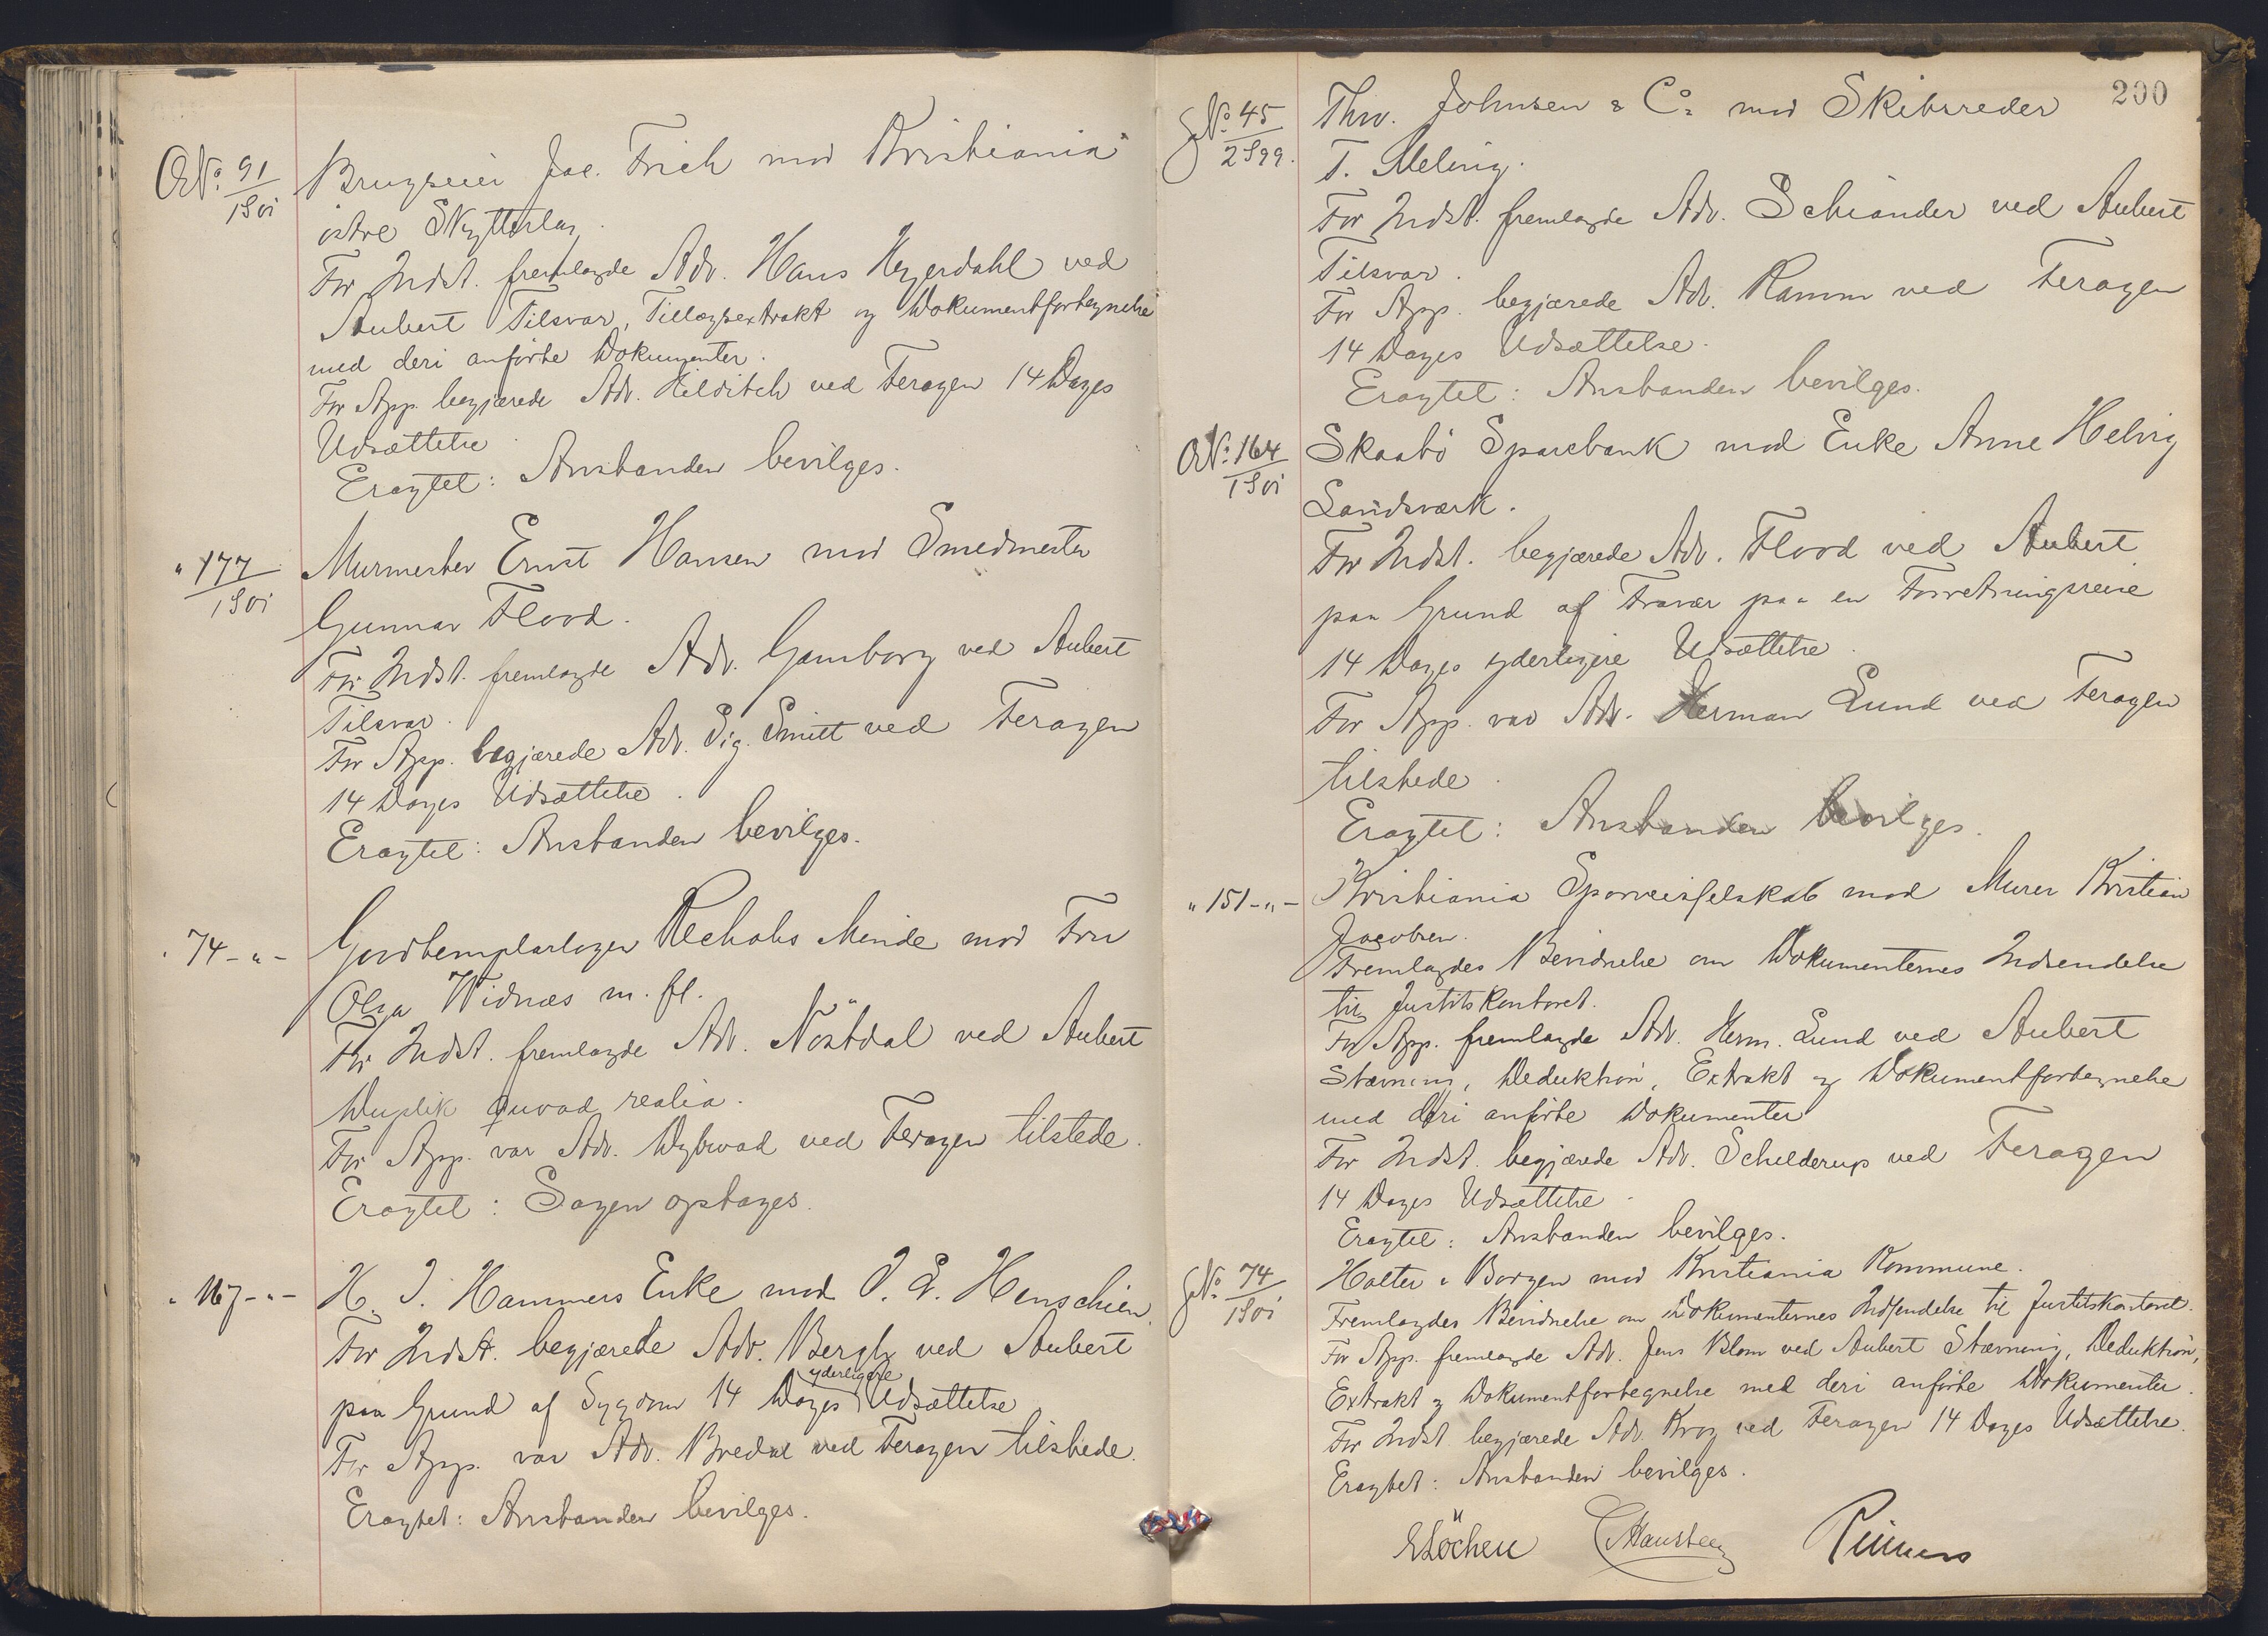 O.N.º 91/1901 Brugseier Jac. Frich mod Kristiania
östre Skytterlag.
For Indst. fremlagde Adv. Hans Heyerdahl ved
Aubert Tilsvar, Tillægsextrakt og Dokumentfortegnelse
med deri anförte Dokumenter.
For App. begjærede Adv. Hilditch ved Feragen 14 Dages
Udsættelse
Eragtet: Anstanden bevilges.
" 177/1901 Murmester Ernst Hansen mod Smedmester
Gunnar Flood.
For Indst. fremlagde Adv. Gamborg ved Aubert
Tilsvar.
For App. begjærede Adv. Sig. Smitt ved Feragen
14 Dages Udsættelse.
Eragtet: Anstanden bevilges.
" 74 - " - Goodtemplarlogen Rechabs Minde mod Fru
Olga Widnæs m. fl.
For Indst. fremlagde Adv. Nöstdal ved Aubert
Duplik quoad realia.
For App. var Adv. Dybwad ved Feragen tilstede.
Eragtet: Sagen optages.
" 167 - " - H. J. Hammers Enke mod J. L. Henschien.
For Indst. begjærede Adv. Bergh ved Aubert
paa Grund af Sygdom 14 Dages yderligere Udsættelse
For App. var Adv. Bredal ved Feragen tilstede.
Eragtet: Anstanden bevilges.
200
G.N.º 45/2 S99. Thv. Johnsen & Cº mod Skibsreder
T. Meling.
For Indst. fremlagde Adv. Schiander ved Aubert
Tilsvar.
For App. begjærede Adv. Ramm ved Feragen
14 Dages Udsættelse.
Eragtet: Anstanden bevilges.
O.N.º 164/1901 Skaabö Sparebank mod Enke Anne Helvig
Landsværk.
For Indst. begjærede Adv. Flood ved Aubert
paa Grund af Fravær paa en Forretningsreise
14 Dages yderligere Udsættelse.
For App. var Adv. Herman Lund ved Feragen
tilstede.
Eragtet: Anstanden bevilges.
" 151 - " - Kristiania Sporveisselskab mod Murer Kristian
Jacobsen.
Fremlagdes Bevidnelse om Dokumenternes Indsendelse
til Justitskontoret.
For App. fremlagde Adv. Herm. Lund ved Aubert
Stævning, Deduktion, Extrakt og Dokumentfortegnelse
med deri anförte Dokumenter
For Indst. begjærede Adv. Schelderup ved Feragen
14 Dages Udsættelse.
Eragtet: Anstanden bevilges.
G.N.º 74/1901 Holter & Borgen mod Kristiania Kommune.
Fremlagdes Bevidnelse om Dokumenternes Indsendelse til Justitskontoret.
For App. fremlagde Adv. Jens Blom ved Aubert Stævning, Deduktion,
Extrakt og Dokumentfortegnelse med deri anförte Dokumenter.
For Indst. begjærede Adv. Krog ved Feragen 14 Dages Udsættelse.
Eragtet: Anstanden bevilges.
Löchen Hansteen Reimers